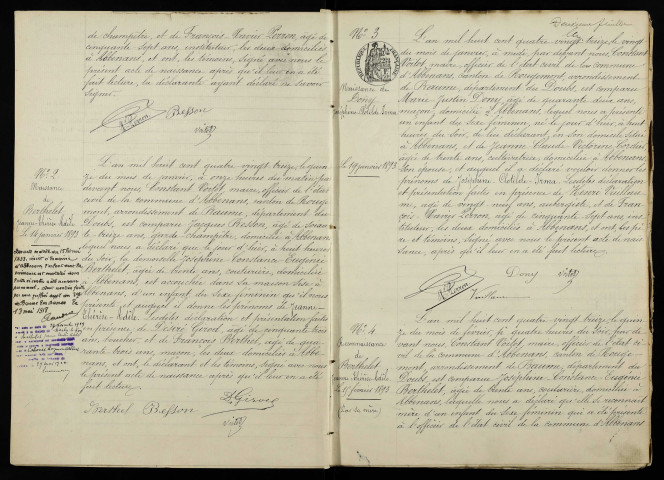 de champêtre, et de François Xavier Perron, agé de
cinquante sept ans, instituteur, les deux domiciliés
à Abbenans, et ont, les témoins, signé avec nous le
présent acte de naissance après qu'il leur en a été
fait lecture, la déclarante ayant déclaré ne savoir
signer.
Perron Besson
N° 2
Naissance
de
Berthelet
le 14 janvier 1893
L'an mil huit cent quatre vingt treize, le quin
ze du mois de janvier, à onze heures du matin, par
devant nous Constant Vortet, maire, officier de l'état
civil de la commune d'Abbenans, canton de Rouge
mont, arrondissement de Baume, département du
Doubs, est comparu Jacques Besson, agé de
ans, garde champêtre, domicilié à Abbenans
lequel nous a déclaré que le jour d'hier, à huit heures
du soir, la demoiselle Joséphine Constance Eugénie
Berthelet, agée de trente ans, couturière, domiciliée
à Abbenans, est accouchée dans sa maison sise à
Abbenans, d'un enfant du sexe féminin qu'il nous
présente et auquel il donne les prénoms de Jeanne
Lesdites déclaration et présentation faites
en présence de Désiré Girod, agé de cinquante trois
ans, et de François Berthet, agé de qua
rante trois ans, maçon, les deux domiciliés à Abbe
nans, et ont, le déclarant et les témoins, signé avec nous
le présent acte de naissance après qu'il leur en a été
fait lecture.
D. Girod
Berthet Besson
N° 3
Naissance de
Dony
le 19 janvier 1893
L'an mil huit cent quatre vingt treize, le vingt
du mois de janvier, à midi, par devant nous, Constant
Vortet, maire, officier de l'état civil de la commune
d'Abbenans, canton de Rougemont, arrondissement
de Baume, département du Doubs, est comparu
Marie Justin Dony, agé de quarante deux ans,
maçon, domicilié à Abbenans, lequel nous a présenté
un enfant du sexe féminin, né le jour d'hier, à huit
heures du soir, de lui déclarant, en son domicile sis
à Abbenans, et de Jeanne Claude Victorine
agée de trente ans, cultivatrice, domiciliée à Abbenans,
son épouse, et auquel il a déclaré vouloir donner les
prénoms de Joséphine Irma. Lesdites déclaration
et présentation faites en présence de Henri Vuillau
me, agé de vingt neuf ans, aubergiste, et de Fran
çois Xavier Perron, agé de cinquante sept ans, ins
tituteur, les deux domiciliés à Abbenans, et ont les pè
re et témoins, signé avec nous le présent acte de nais
sance, après qu'il leur en a été fait lecture.
Dony
Perron
Vuillaume
N° 4
Reconnaissance
de
Berthelet
le 15 février 1893
(par la mère)
L'an mil huit cent quatre vingt treize, le quin
ze du mois de février, à quatre heures du soir, par de
vant nous, Constant Vortet, maire, officier de l'état ci
vil de la commune d'Abbenans, canton de Rouge
mont, arrondissement de Baume, département du
Doubs, est comparue Joséphine Constance Eugénie
Berthelet, agée de trente ans, couturière, domiciliée à
Abbenans, laquelle nous a déclaré qu'elle se reconnaît
mère d'un enfant du sexe féminin qui a été présenté
à l'officier de l'état civil de la commune d'Abbenans